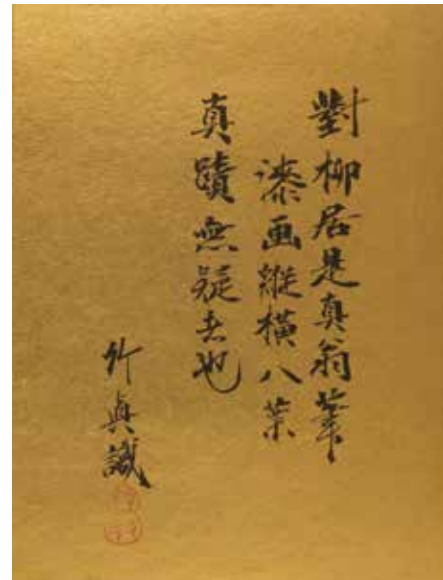 對柳居是真翁筆
漆画縱横八葉
真蹟無疑者也
竹真識